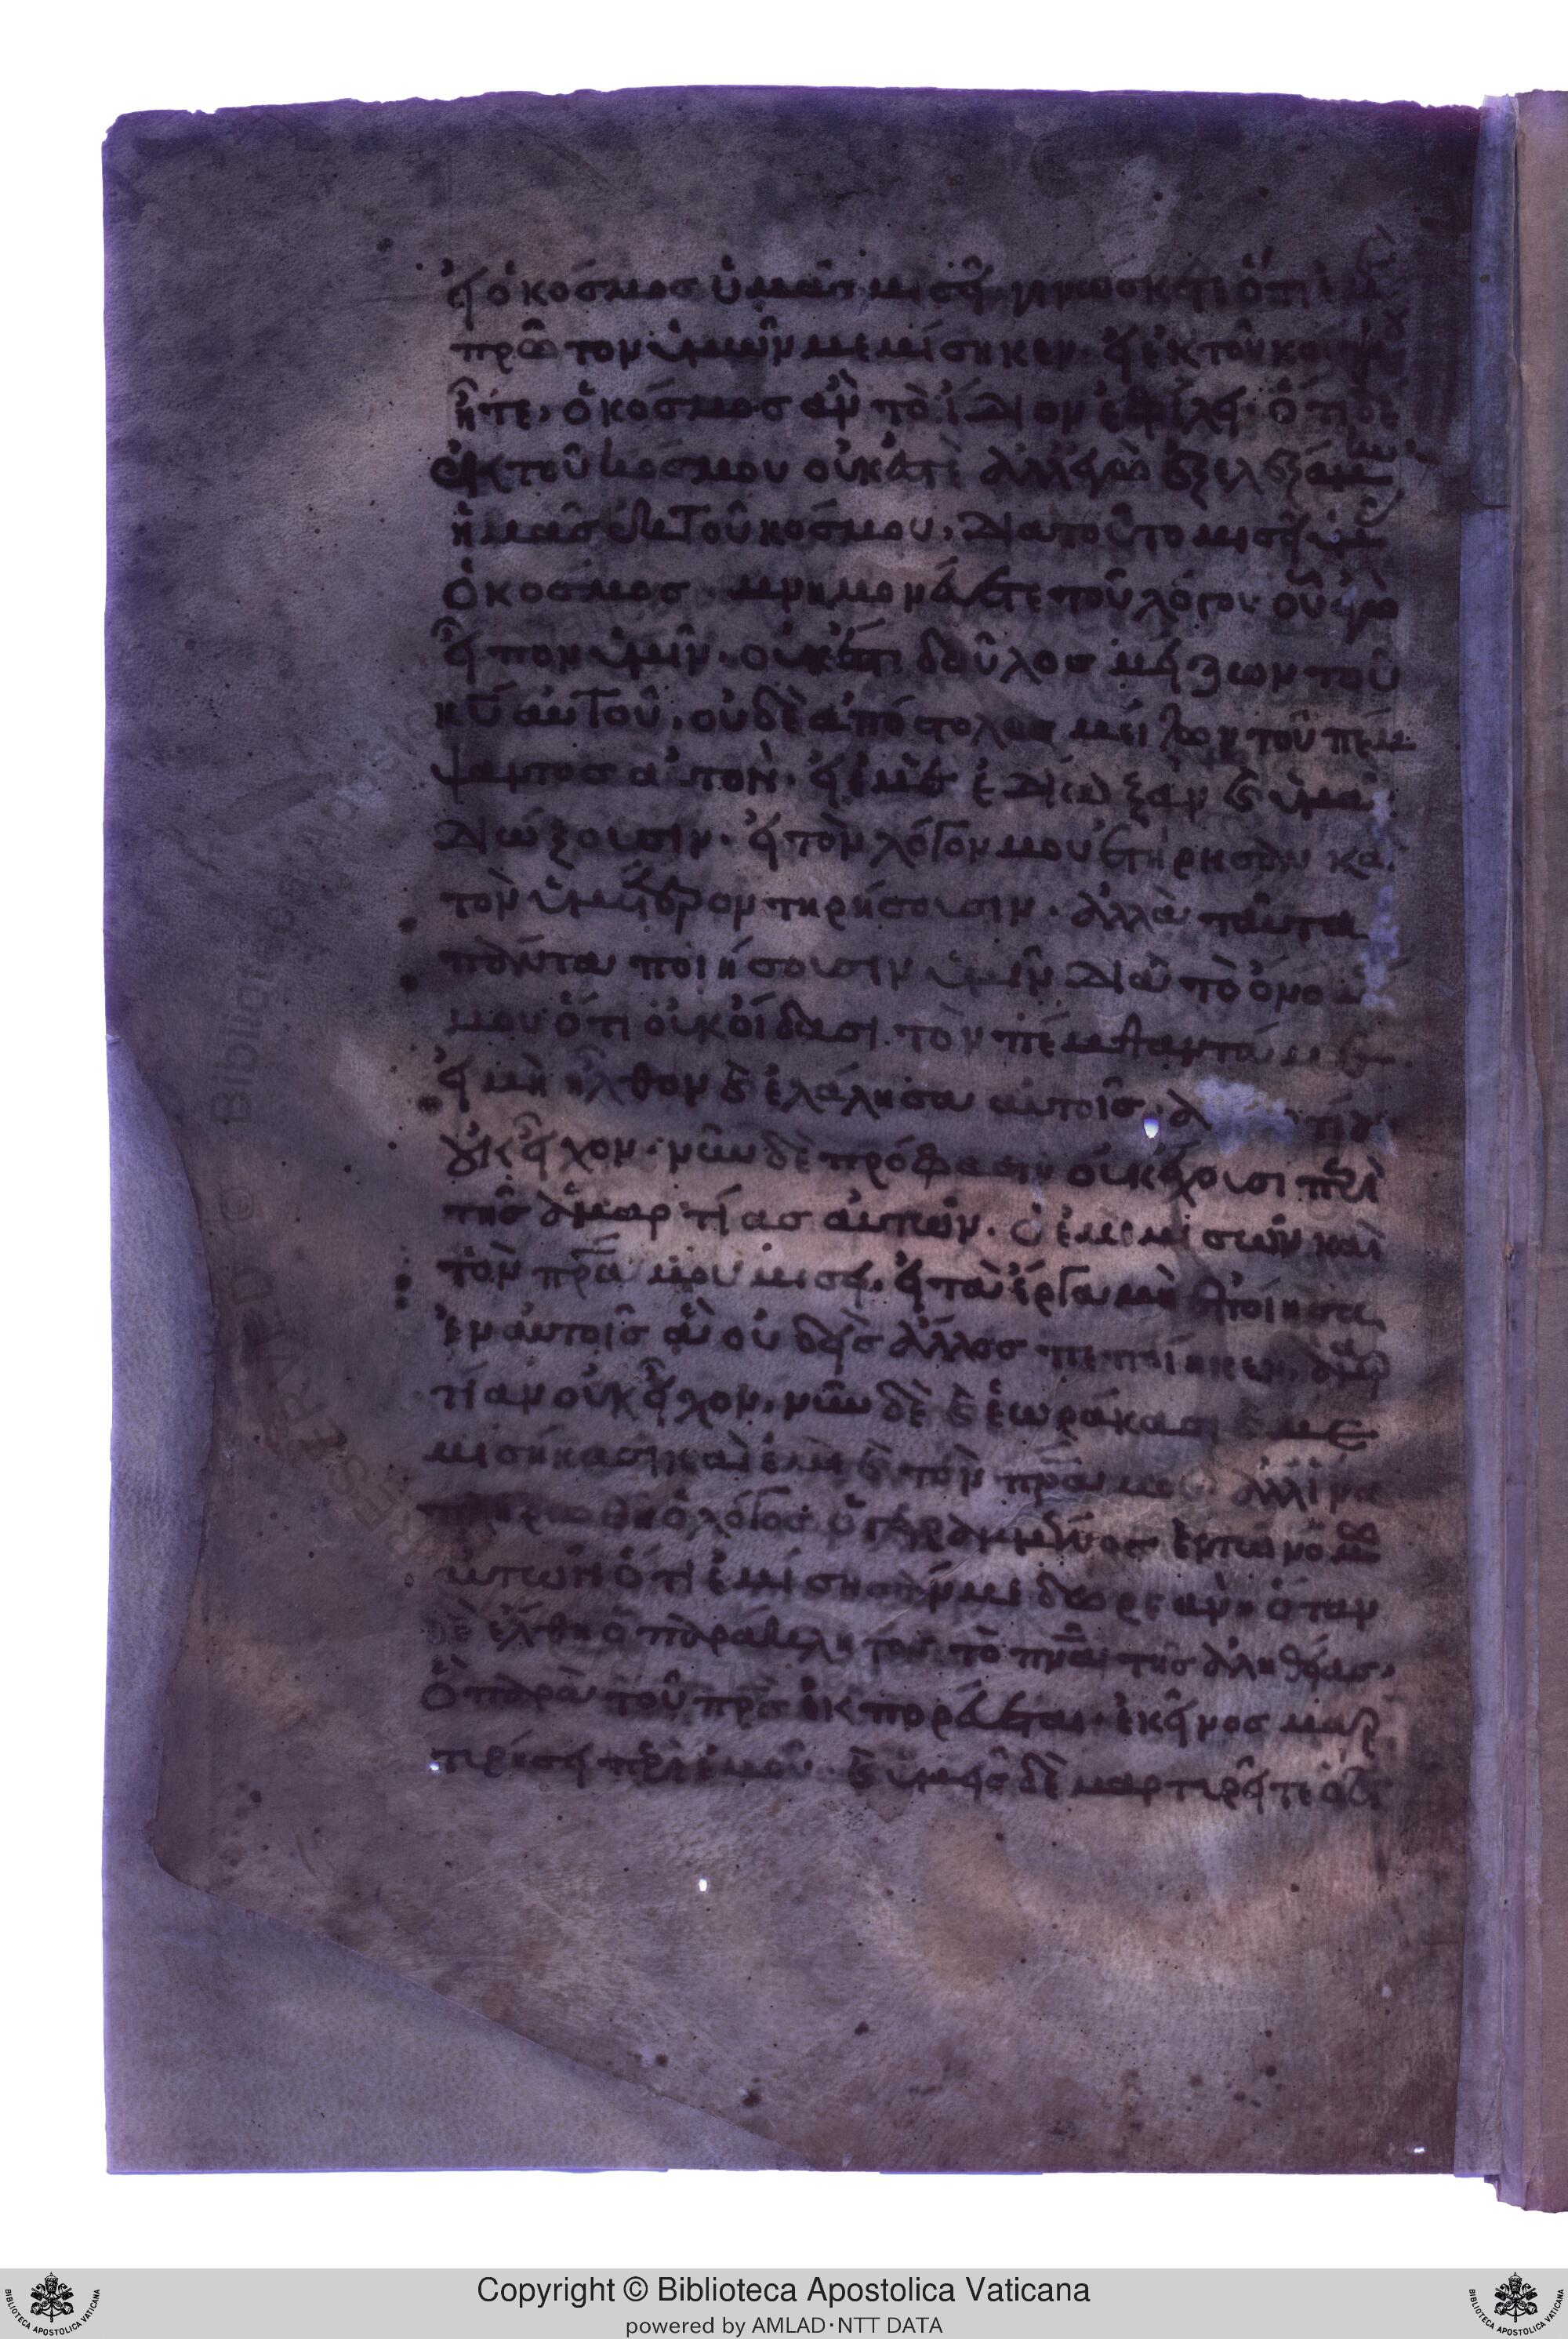 εἰ ὁ κόσμος ὑμᾶς μισεῖ· γινώσκετε ὅτι ἐμὲ
πρῶτον ὑμῶν μεμίσηκεν· εἰ ἐκ τοῦ κόσμου
ἦτε, ὁ κόσμος ἂν τὸ ἴδιον ἐφίλει· ὅτι δὲ
ἐκ τοῦ κόσμου οὐκ ἐστὲ ἀλλ' ἐγὼ ἐξελεξάμην
ἡμᾶς ἐκ τοῦ κόσμου, διατοῦτο μισεῖ ὑμᾶς
ὁ κόσμος· μνημονεύετε τοῦ λόγου οὗ ἐγὼ
εἶπον ὑμῖν· οὐκ ἔστι δοῦλος μείζων τοῦ
κῡ αὐτοῦ, οὐδὲ ἀπόστολος μείζων τοῦ πέμ
ψαντος αὐτὸν· εἰ ἐμὲ ἐδίωξαν καὶ ὑμᾶς
διώξουσιν· εἰ τὸν λόγον μου ἐτήρησαν καὶ
τὸν ὑμέτερον τηρήσουσιν· ἀλλὰ ταῦτα
πάντα ποιήσουσιν ὑμῖν διὰ τὸ ὄνομά
μου ὅτι οὐκ οἴδασι τὸν πέμψαντά με
εἰ μὴ ἦλθον καὶ ἐλάλησα αὐτοῖς,
οὐκ εἶχον· νῦν δὲ πρόφασιν οὐκ ἔχουσι περὶ
τῆς ἁμαρτίας αὐτῶν· ὁ ἐμὲ μισῶν καὶ
τὸν πρ̄α μου μισεῖ, εἰ τὰ ἔργα μὴ ἐποίησα
ἐν αὐτοῖς ἃ οὐδεὶς ἄλλος πεποίηκεν, ἁμαρ
τίαν οὐκ εἶχον, νῦν δὲ καὶ ἑωράκασι καὶ με
μισήκασι καὶ ἐμὲ καὶ τὸν πρ̄α μου· ἀλλ' ἵνα
πληρωθῆ ὁ λόγος ὁ γεγραμμένος ἐν τῶ νόμω
αὐτῶν ὅτι ἐμίσησάν με δωρεάν· ὅταν
δὲ ἔλθη ὁ παράκλητος τὸ πν̄α τῆς ἀληθείας,
ὃ παρὰ τοῦ πρ̄ς ἐκπορεύεται· ἐκεῖνος μαρ
τυρήσει περὶ ἐμοῦ· καὶ ὑμεῖς δὲ μαρτυρεῖτε ὅτι